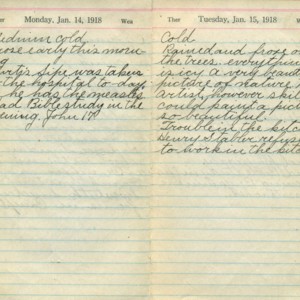 Ther Monday, Jan. 14, 1918 Wea
Medium cold
rose early this morn
ing
Curtis Sipe was taken
the hospital to day,
he has the measles
ad Bible study in the
evening. John 17.
Ther Tuesday, Jan. 15, 1918 Wea
Cold
Rained and froze on
the trees. everything
is icy a very beau
picture of nature.
Artist, however skil
could paint a pic
so beautiful
Trouble in the kitc
Henry Stabler refus
to work in the kitc